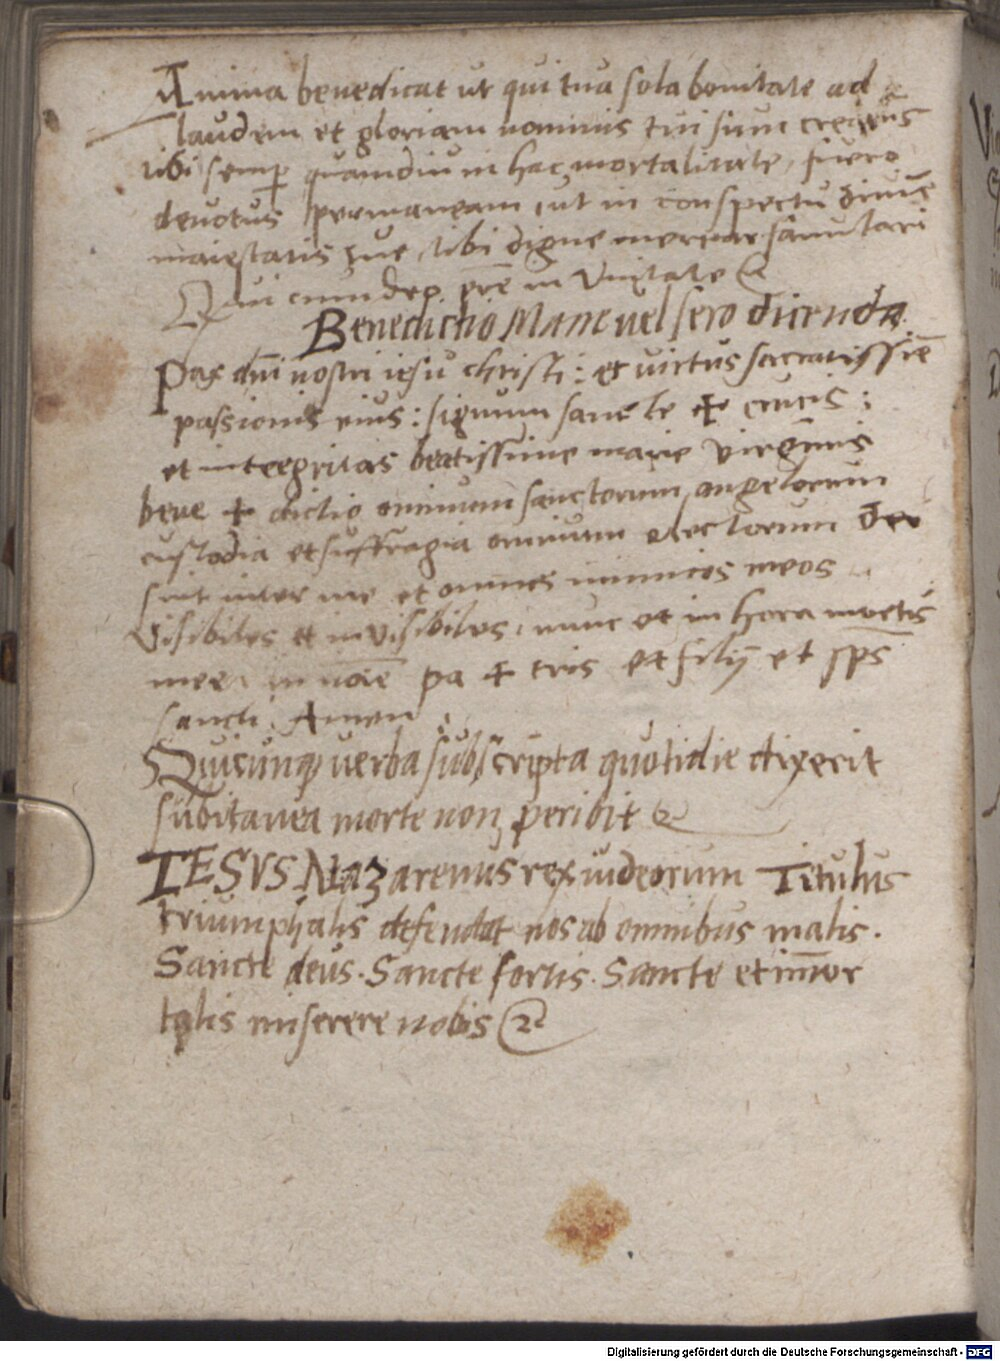 Anima benedicat ut qui tua sola bonitate ad
laudem et gloriam nominis tui sum creatus
tibi semp quamdiu in hac mortalitate fuero
devotus permaneam ut in conspectu divinē
maiestatis tue tibi digne merear famulari
Qui cum deo pr̄e in Unitate
Benedictio Mane vel sero dicenda
Pax dn̄i nostri iesu christi: et virtus sacratissiē
passionis eius: signum sancte ✝ crucis:
et integritas beatissime marie virginis
bene ✝ dictio omnium sanctorum angelorum
custodia et suffragia omnium electorum dei
sint inter me et omnes inimicos meos
Visibiles et inVisibiles, nunc et in hora mortis
mee. in noīe pa ✝ tris et filij et sp̄s
sancti. Amen
Quicunq verba subscripta quotidie dixerit
subitanea morte non peribit
IESVS Nazarenus rex iudeorum Titulus
triumphalis defendat nos ab omnibus malis.
Sancte deus. Sancte fortis. Sancte et im̄or
talis miserere nobis